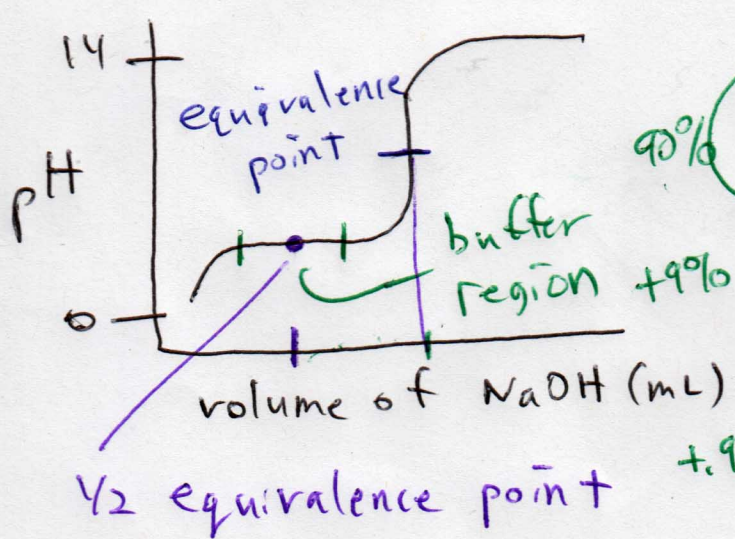 14
equivalence
point
pH
90%
buffer
region
+9%
0
volume of NaOH (mL)
+.9
1/2 equivalence point